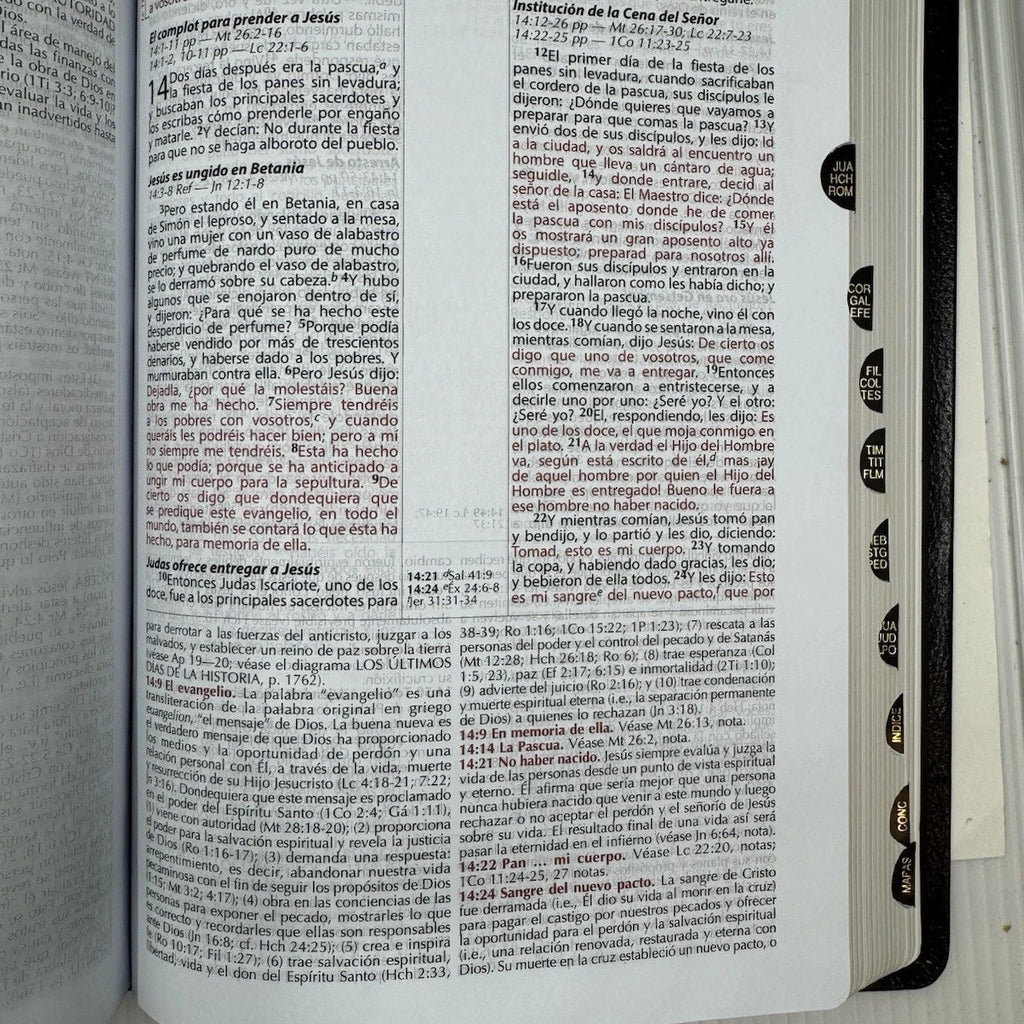 a vosotros
El complot para prender a Jesús
14:1-11 pp — Mt 26:2-16
14:1-2, 10-11 pp — Lc 22:1-6
14Dos días después era la pascua,ᵃ y
la fiesta de los panes sin levadura;
y buscaban los principales sacerdotes y
los escribas cómo prenderle por engaño
y matarle. ²Y decían: No durante la fiesta
para que no se haga alboroto del pueblo.
Jesús es ungido en Betania
14:3-8 Ref — Jn 12:1-8
³Pero estando él en Betania, en casa
de Simón el leproso, y sentado a la mesa,
vino una mujer con un vaso de alabastro
de perfume de nardo puro de mucho
precio; y quebrando el vaso de alabastro,
se lo derramó sobre su cabeza.ᵇ ⁴Y hubo
algunos que se enojaron dentro de sí,
y dijeron: ¿Para qué se ha hecho este
desperdicio de perfume? ⁵Porque podía
haberse vendido por más de trescientos
denarios, y haberse dado a los pobres. Y
murmuraban contra ella. ⁶Pero Jesús dijo:
Dejadla, ¿por qué la molestáis? Buena
obra me ha hecho. ⁷Siempre tendréis
a los pobres con vosotros,ᶜ y cuando
queráis les podréis hacer bien; pero a mí
no siempre me tendréis. ⁸Esta ha hecho
lo que podía; porque se ha anticipado a
ungir mi cuerpo para la sepultura. ⁹De
cierto os digo que dondequiera que
se predique este evangelio, en todo el
mundo, también se contará lo que ésta ha
hecho, para memoria de ella.
Judas ofrece entregar a Jesús
¹⁰Entonces Judas Iscariote, uno de los
doce, fue a los principales sacerdotes para
14:21 ᵈSal 41:9
14:24 ᵉÉx 24:6-8
ᶠJer 31:31-34
Institución de la Cena del Señor
14:12-26 pp — Mt 26:17-30; Lc 22:7-23
14:22-25 pp — 1Co 11:23-25
¹²El primer día de la fiesta de los
panes sin levadura, cuando sacrificaban
el cordero de la pascua, sus discípulos le
dijeron: ¿Dónde quieres que vayamos a
preparar para que comas la pascua? ¹³Y
envió dos de sus discípulos, y les dijo: Id
a la ciudad, y os saldrá al encuentro un
hombre que lleva un cántaro de agua;
seguidle, ¹⁴y donde entrare, decid al
señor de la casa: El Maestro dice: ¿Dónde
está el aposento donde he de comer
la pascua con mis discípulos? ¹⁵Y él
os mostrará un gran aposento alto ya
dispuesto; preparad para nosotros allí.
¹⁶Fueron sus discípulos y entraron en la
ciudad, y hallaron como les había dicho; y
prepararon la pascua.
¹⁷Y cuando llegó la noche, vino él con
los doce. ¹⁸Y cuando se sentaron a la mesa,
mientras comían, dijo Jesús: De cierto os
digo que uno de vosotros, que come
conmigo, me va a entregar. ¹⁹Entonces
ellos comenzaron a entristecerse, y a
decirle uno por uno: ¿Seré yo? Y el otro:
¿Seré yo? ²⁰Él, respondiendo, les dijo: Es
uno de los doce, el que moja conmigo en
el plato. ²¹A la verdad el Hijo del Hombre
va, según está escrito de él,ᵈ mas ¡ay
de aquel hombre por quien el Hijo del
Hombre es entregado! Bueno le fuera a
ese hombre no haber nacido.
²²Y mientras comían, Jesús tomó pan
y bendijo, y lo partió y les dio, diciendo:
Tomad, esto es mi cuerpo. ²³Y tomando
la copa, y habiendo dado gracias, les dio;
y bebieron de ella todos. ²⁴Y les dijo: Esto
es mi sangreᵉ del nuevo pacto,ᶠ que por
para derrotar a las fuerzas del anticristo, juzgar a los
malvados, y establecer un reino de paz sobre la tierra
(véase Ap 19—20; véase el diagrama LOS ÚLTIMOS
DÍAS DE LA HISTORIA, p. 1762).
14:9 El evangelio. La palabra “evangelio” es una
transliteración de la palabra original en griego
euangelion, “el mensaje” de Dios. La buena nueva es
el verdadero mensaje de que Dios ha proporcionado
los medios y la oportunidad de perdón y una
relación personal con Él, a través de la vida, muerte
y resurrección de su Hijo Jesucristo (Lc 4:18-21; 7:22;
Jn 3:16). Dondequiera que este mensaje es proclamado
en el poder del Espíritu Santo (1Co 2:4; Gá 1:11),
(1) viene con autoridad (Mt 28:18-20); (2) proporciona
el poder para la salvación espiritual y revela la justicia
de Dios (Ro 1:16-17); (3) demanda una respuesta:
arrepentimiento, es decir, abandonar nuestra vida
pecaminosa con el fin de seguir los propósitos de Dios
(1:15; Mt 3:2; 4:17); (4) obra en las conciencias de las
personas para exponer el pecado, mostrarles lo que
es correcto y recordarles que ellas son responsables
ante Dios (Jn 16:8; cf. Hch 24:25); (5) crea e inspira
fe (Ro 10:17; Fil 1:27); (6) trae salvación espiritual,
libertad, vida y el don del Espíritu Santo (Hch 2:33,
38-39; Ro 1:16; 1Co 15:22; 1P 1:23); (7) rescata a las
personas del poder y el control del pecado y de Satanás
(Mt 12:28; Hch 26:18; Ro 6); (8) trae esperanza (Col
1:5, 23), paz (Ef 2:17; 6:15) e inmortalidad (2Ti 1:10);
(9) advierte del juicio (Ro 2:16); y (10) trae condenación
y muerte espiritual eterna (i.e., la separación permanente
de Dios) a quienes lo rechazan (Jn 3:18).
14:9 En memoria de ella. Véase Mt 26:13, nota.
14:14 La Pascua. Véase Mt 26:2, nota.
14:21 No haber nacido. Jesús siempre evalúa y juzga la
vida de las personas desde un punto de vista espiritual
y eterno. Él afirma que sería mejor que una persona
nunca hubiera nacido que venir a este mundo y luego
rechazar o no aceptar el perdón y el señorío de Jesús
sobre su vida. El resultado final de una vida así será
pasar la eternidad en el infierno (véase Jn 6:64, nota).
14:22 Pan ... mi cuerpo. Véase Lc 22:20, notas;
1Co 11:24-25, 27 notas.
14:24 Sangre del nuevo pacto. La sangre de Cristo
fue derramada (i.e., Él dio su vida al morir en la cruz)
para pagar el castigo por nuestros pecados y ofrecer
la oportunidad para el perdón y la salvación espiritual
(i.e., una relación renovada, restaurada y eterna con
Dios). Su muerte en la cruz estableció un nuevo pacto, o
JUA
HCH
ROM
COR
GAL
EFE
FIL
COL
TES
TIM
TIT
FLM
STG
JUD
INDICE
CONC
MAPAS